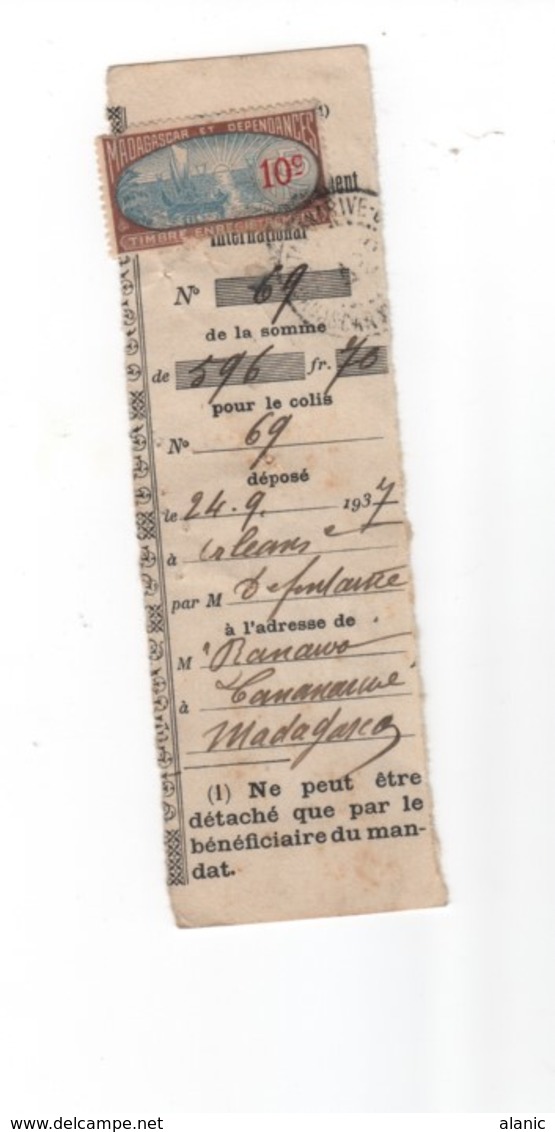 1)
MADAGASCAR ET DEPENDANCES
10c
TIMBRE ENREGISTREMENT
International
No 69
de la somme
de 596 fr. 70
pour le colis
No 69
déposé
le 24.9. 1937
à Orleans
par M
à l'adresse de
M
à Tananarive
Madagascar
(1) Ne peut être
détaché que par le
bénéficiaire du man-
dat.
www.delcampe.net
alanic